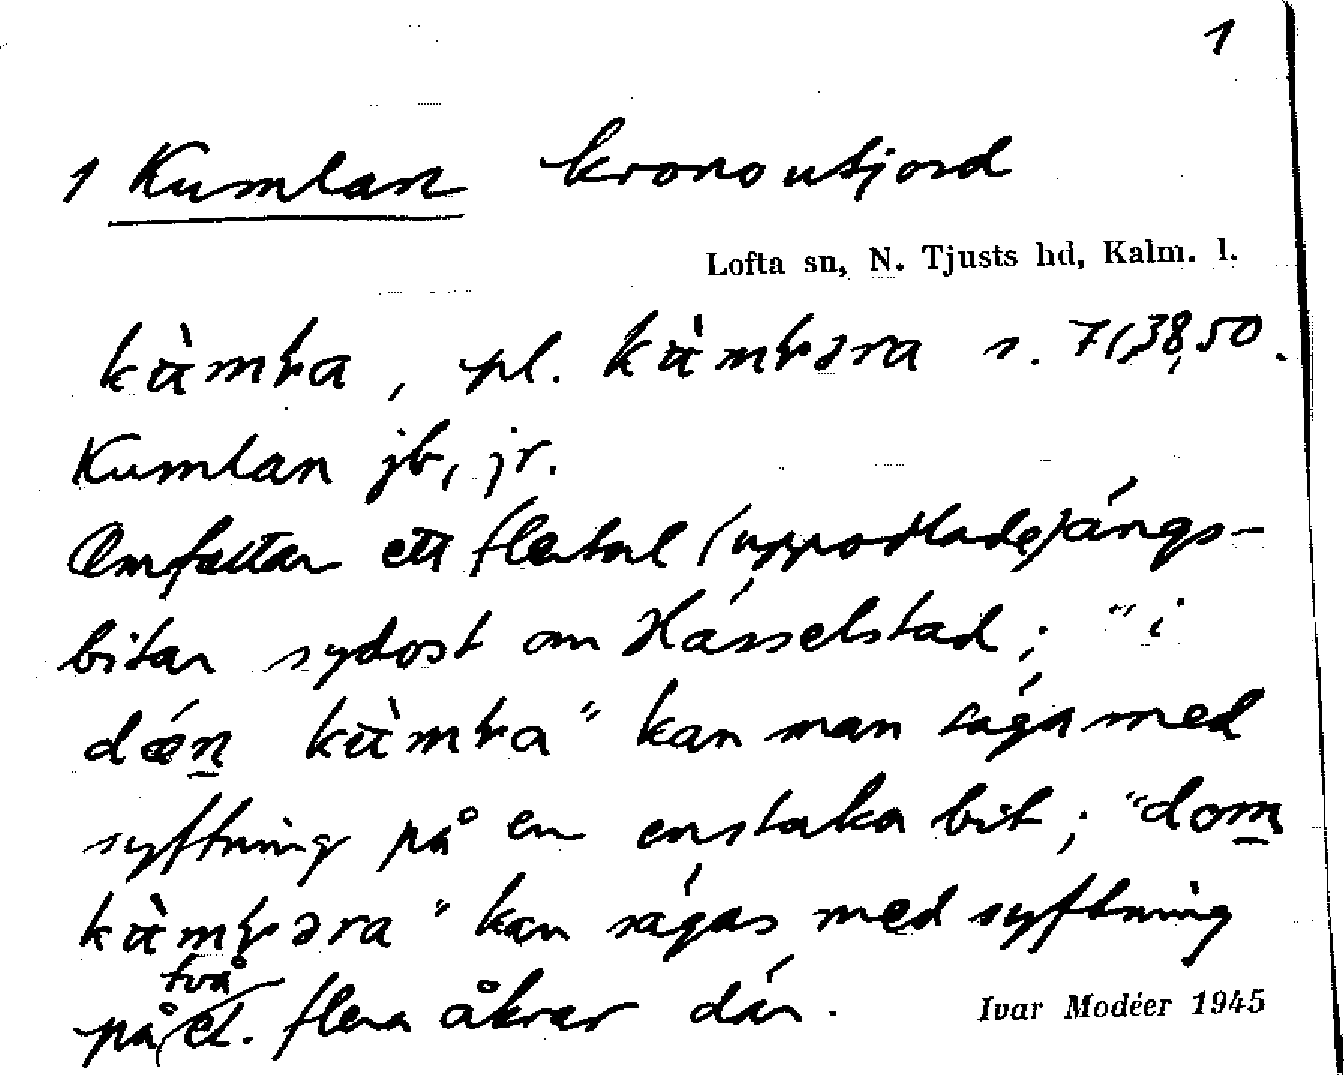 1
1 Kumlan kronoutjord
Lofta sn, N. Tjusts hd, Kalm. l.
, pl. s. 71,38,50.
Kumlan jb, jr.
Omfattar ett flertal (uppodlade) ängs-
bitar sydost om Hässelstad; "i
dæn " kan man säga med
syftning på en enstaka bit; "dom
" kan sägas med syftning
på två el. flera åkrar där.
Ivar Modéer 1945